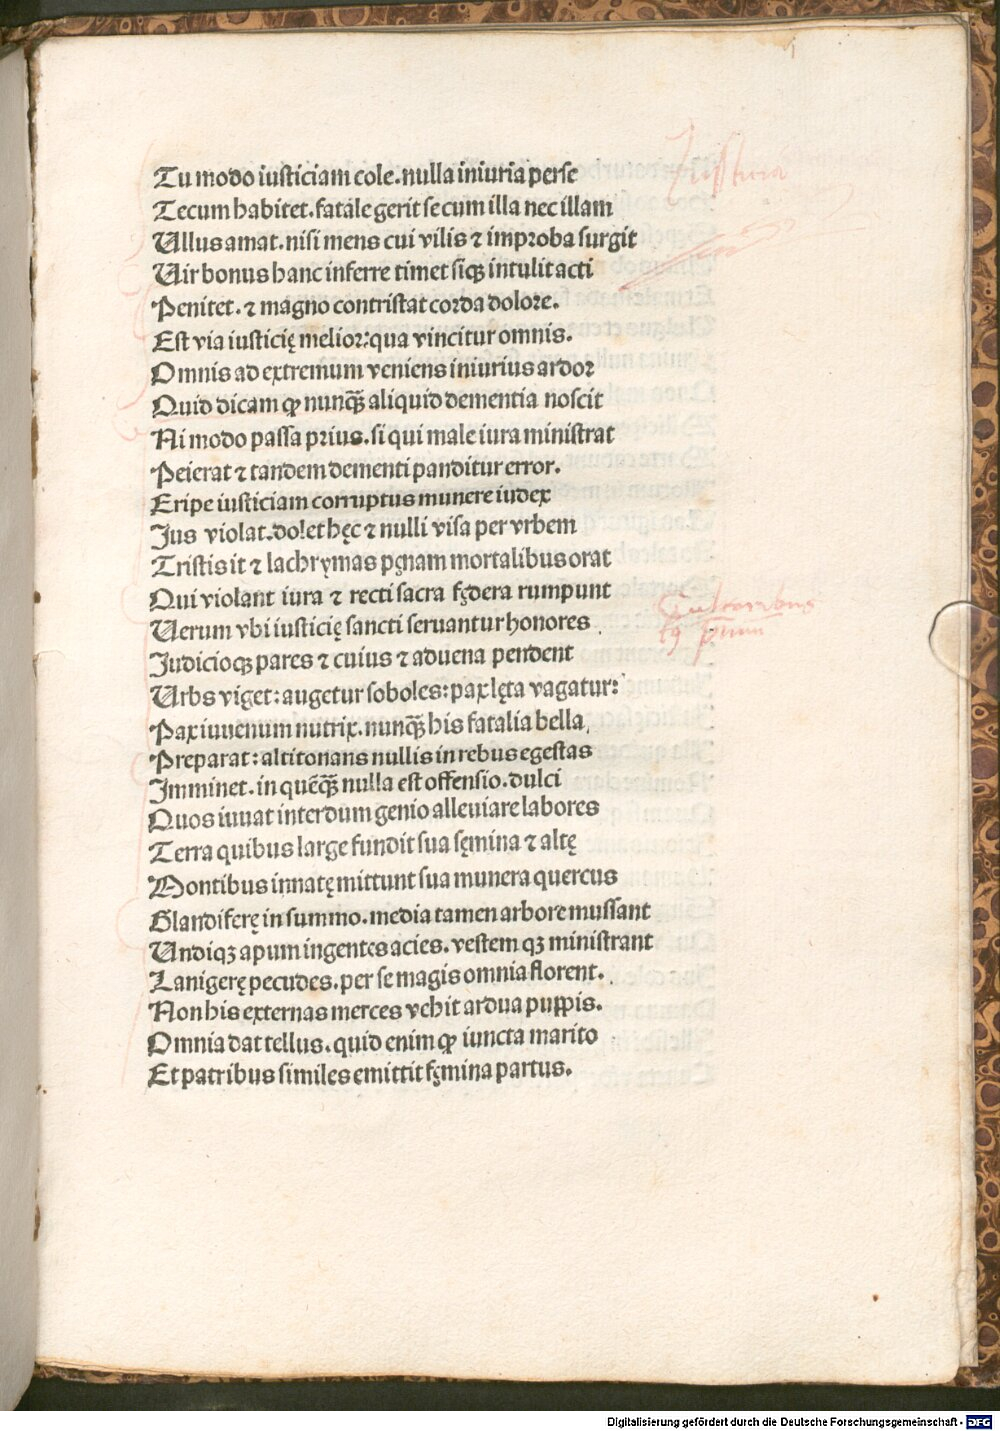 Justitia
Tu modo iusticiam cole. nulla iniuria perse
Tecum habitet. fatale gerit secum illa nec illam
Ullus amat. nisi mens cui vilis ⁊ improba surgit
Uir bonus hanc inferre timet siqꝫ intulit acti
Penitet. ⁊ magno contristat corda dolore.
Est via iusticię melior: qua vincitur omnis.
Omnis ad extremum veniens iniurius ardor
Quid dicam ꝙ nunqᷓꝫ aliquid dementia noscit
Ni modo passa prius. si qui male iura ministrat
Peierat ⁊ tandem dementi panditur error.
Eripe iusticiam corruptus munere iudex
Jus violat. dolet hęc ⁊ nulli visa per vrbem
Tristis it ⁊ lachrymas pęnam mortalibus orat
Qui violant iura ⁊ recti sacra fędera rumpunt
Uerum vbi iusticię sancti seruantur honores
Judicioqꝫ pares ⁊ cuius ⁊ aduena pendent
Urbs viget: augetur soboles: pax lęta vagatur:
Pax iuuenum nutrix. nunqᷓꝫ his fatalia bella
Preparat: altitonans nullis in rebus egestas
Imminet. in quēqᷓꝫ nulla est offensio. dulci
Quos iuuat interdum genio alleuiare labores
Terra quibus large fundit sua sęmina ⁊ altę
Montibus innatę mittunt sua munera quercus
Glandiferę in summo. media tamen arbore mussant
Undiqꝫ apum ingentes acies. vestem qꝫ ministrant
Lanigerę pecudes. per se magis omnia florent.
Non his externas merces vehit ardua puppis.
Omnia dat tellus. quid enim ꝙ iuncta marito
Et patribus similes emittit fęmina partus.
Digitalisierung gefördert durch die Deutsche Forschungsgemeinschaft - DFG